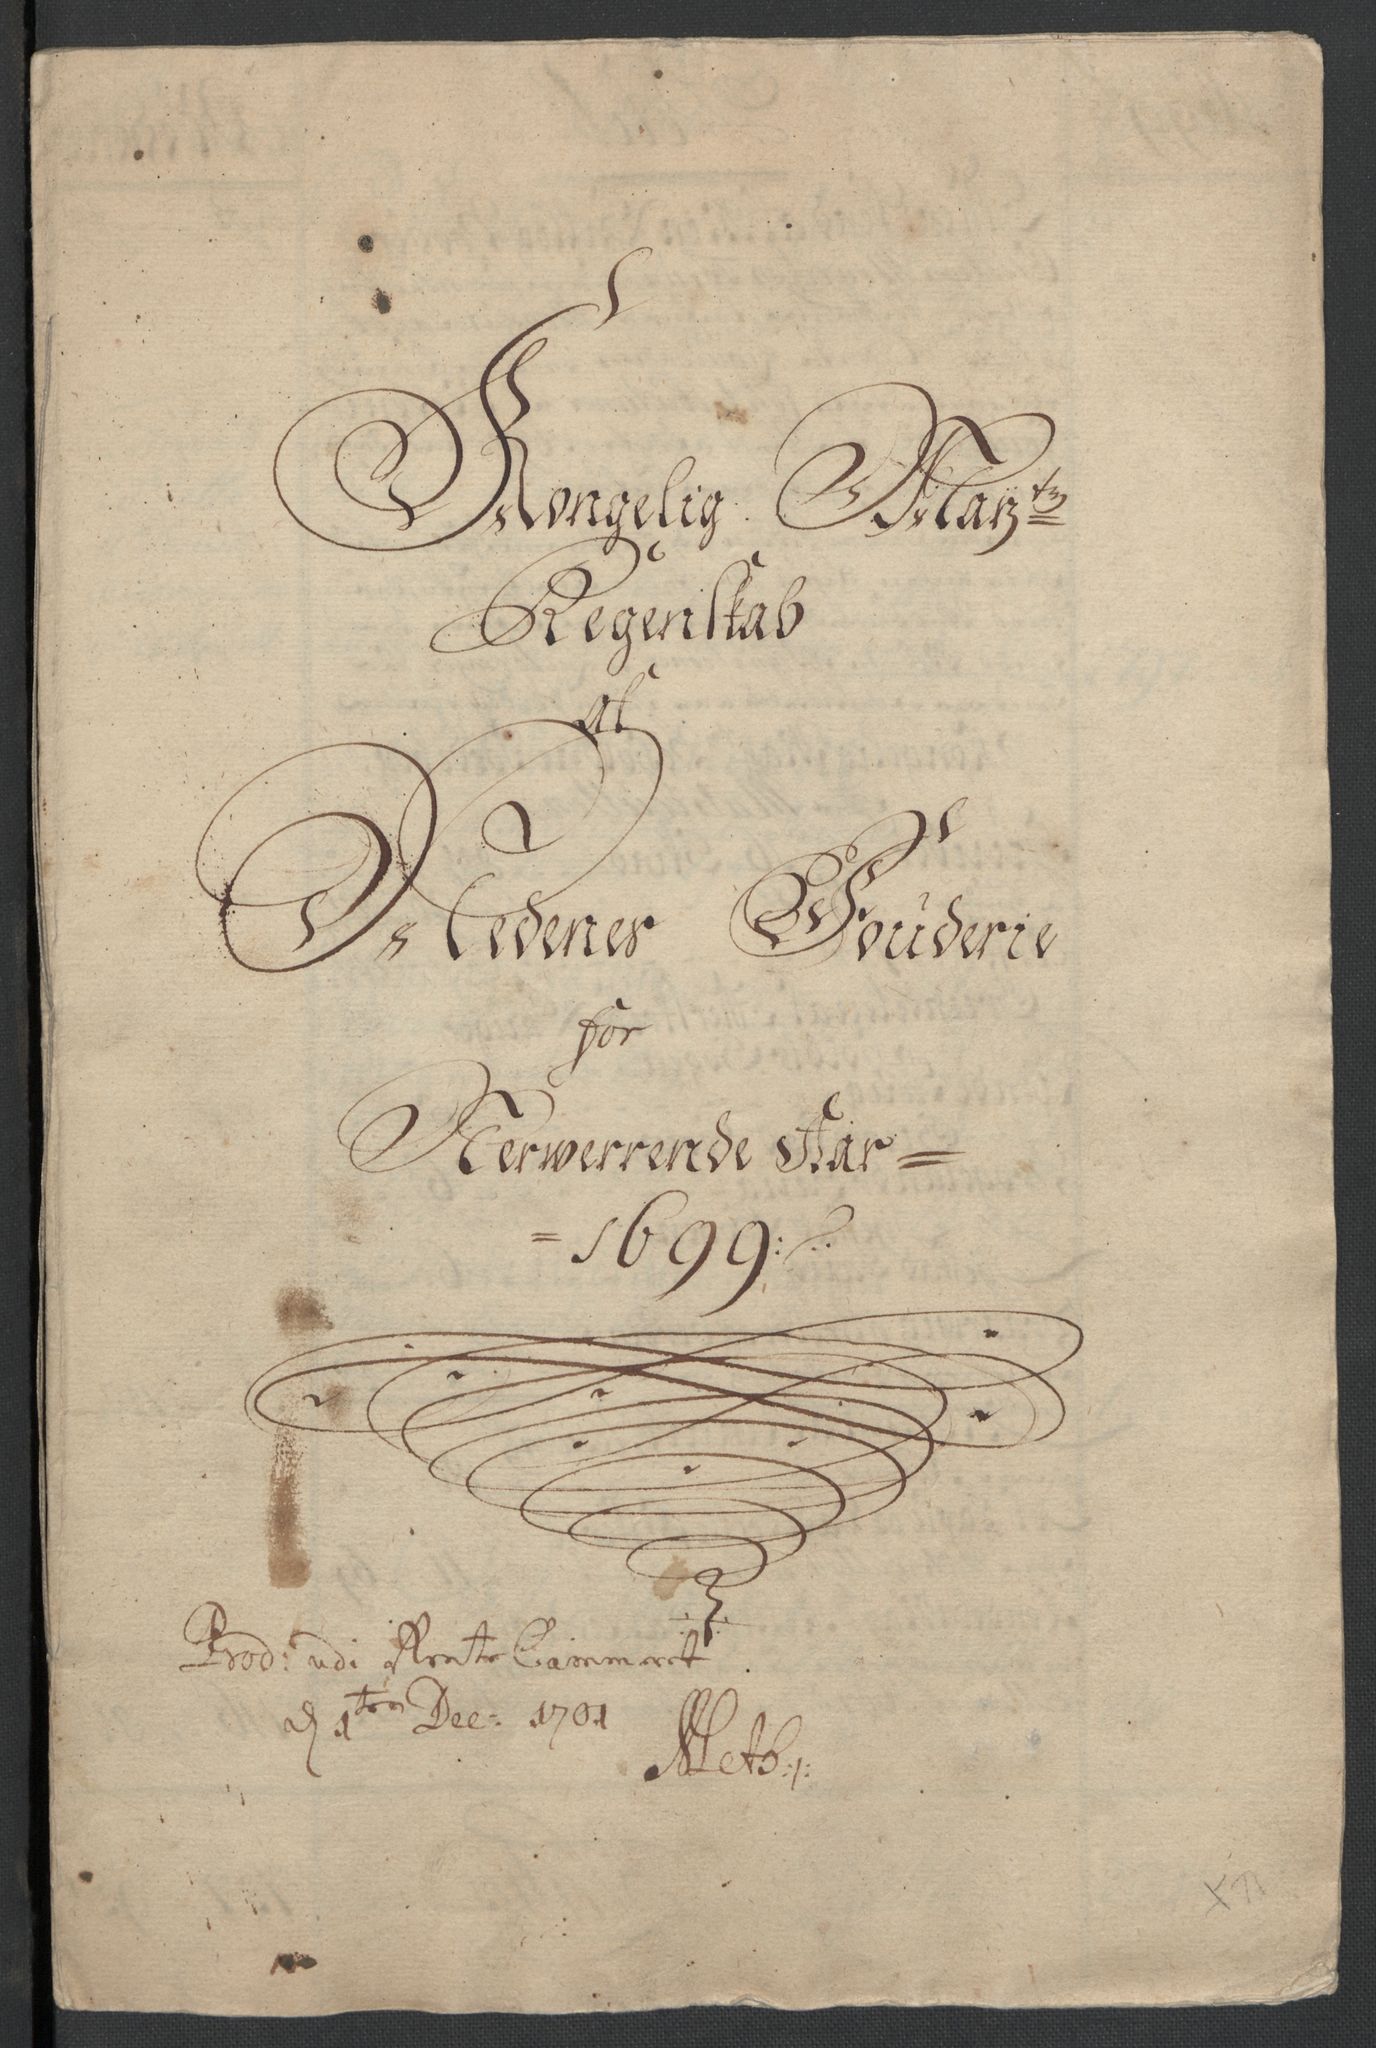 Kongelig Maÿtz
Regenskab
af
Nedenes Foŭderie
for
Nerwerrende Aar =
= 1699:
Prod: udi Rente Cammeret
d 1ten Dec: 1701